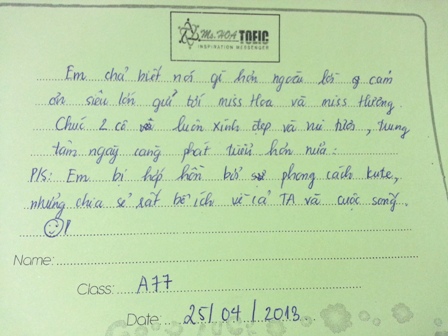 Ms. HOA TOEIC
INSPIRATION MESSENGER
Em chả biết nói gì hơn ngoài lời cảm
ơn siêu lớn gửi tới miss Hoa và miss Hường.
Chúc 2 cô luôn xinh đẹp và vui tươi, trung
tâm ngày càng phát triển hơn nữa.
P/s: Em bị hớp hồn bởi phong cách kute,
những chia sẻ rất bổ ích về cả TA và cuộc sống.
!
Name:
Class: A77
Date: 25/04/2013